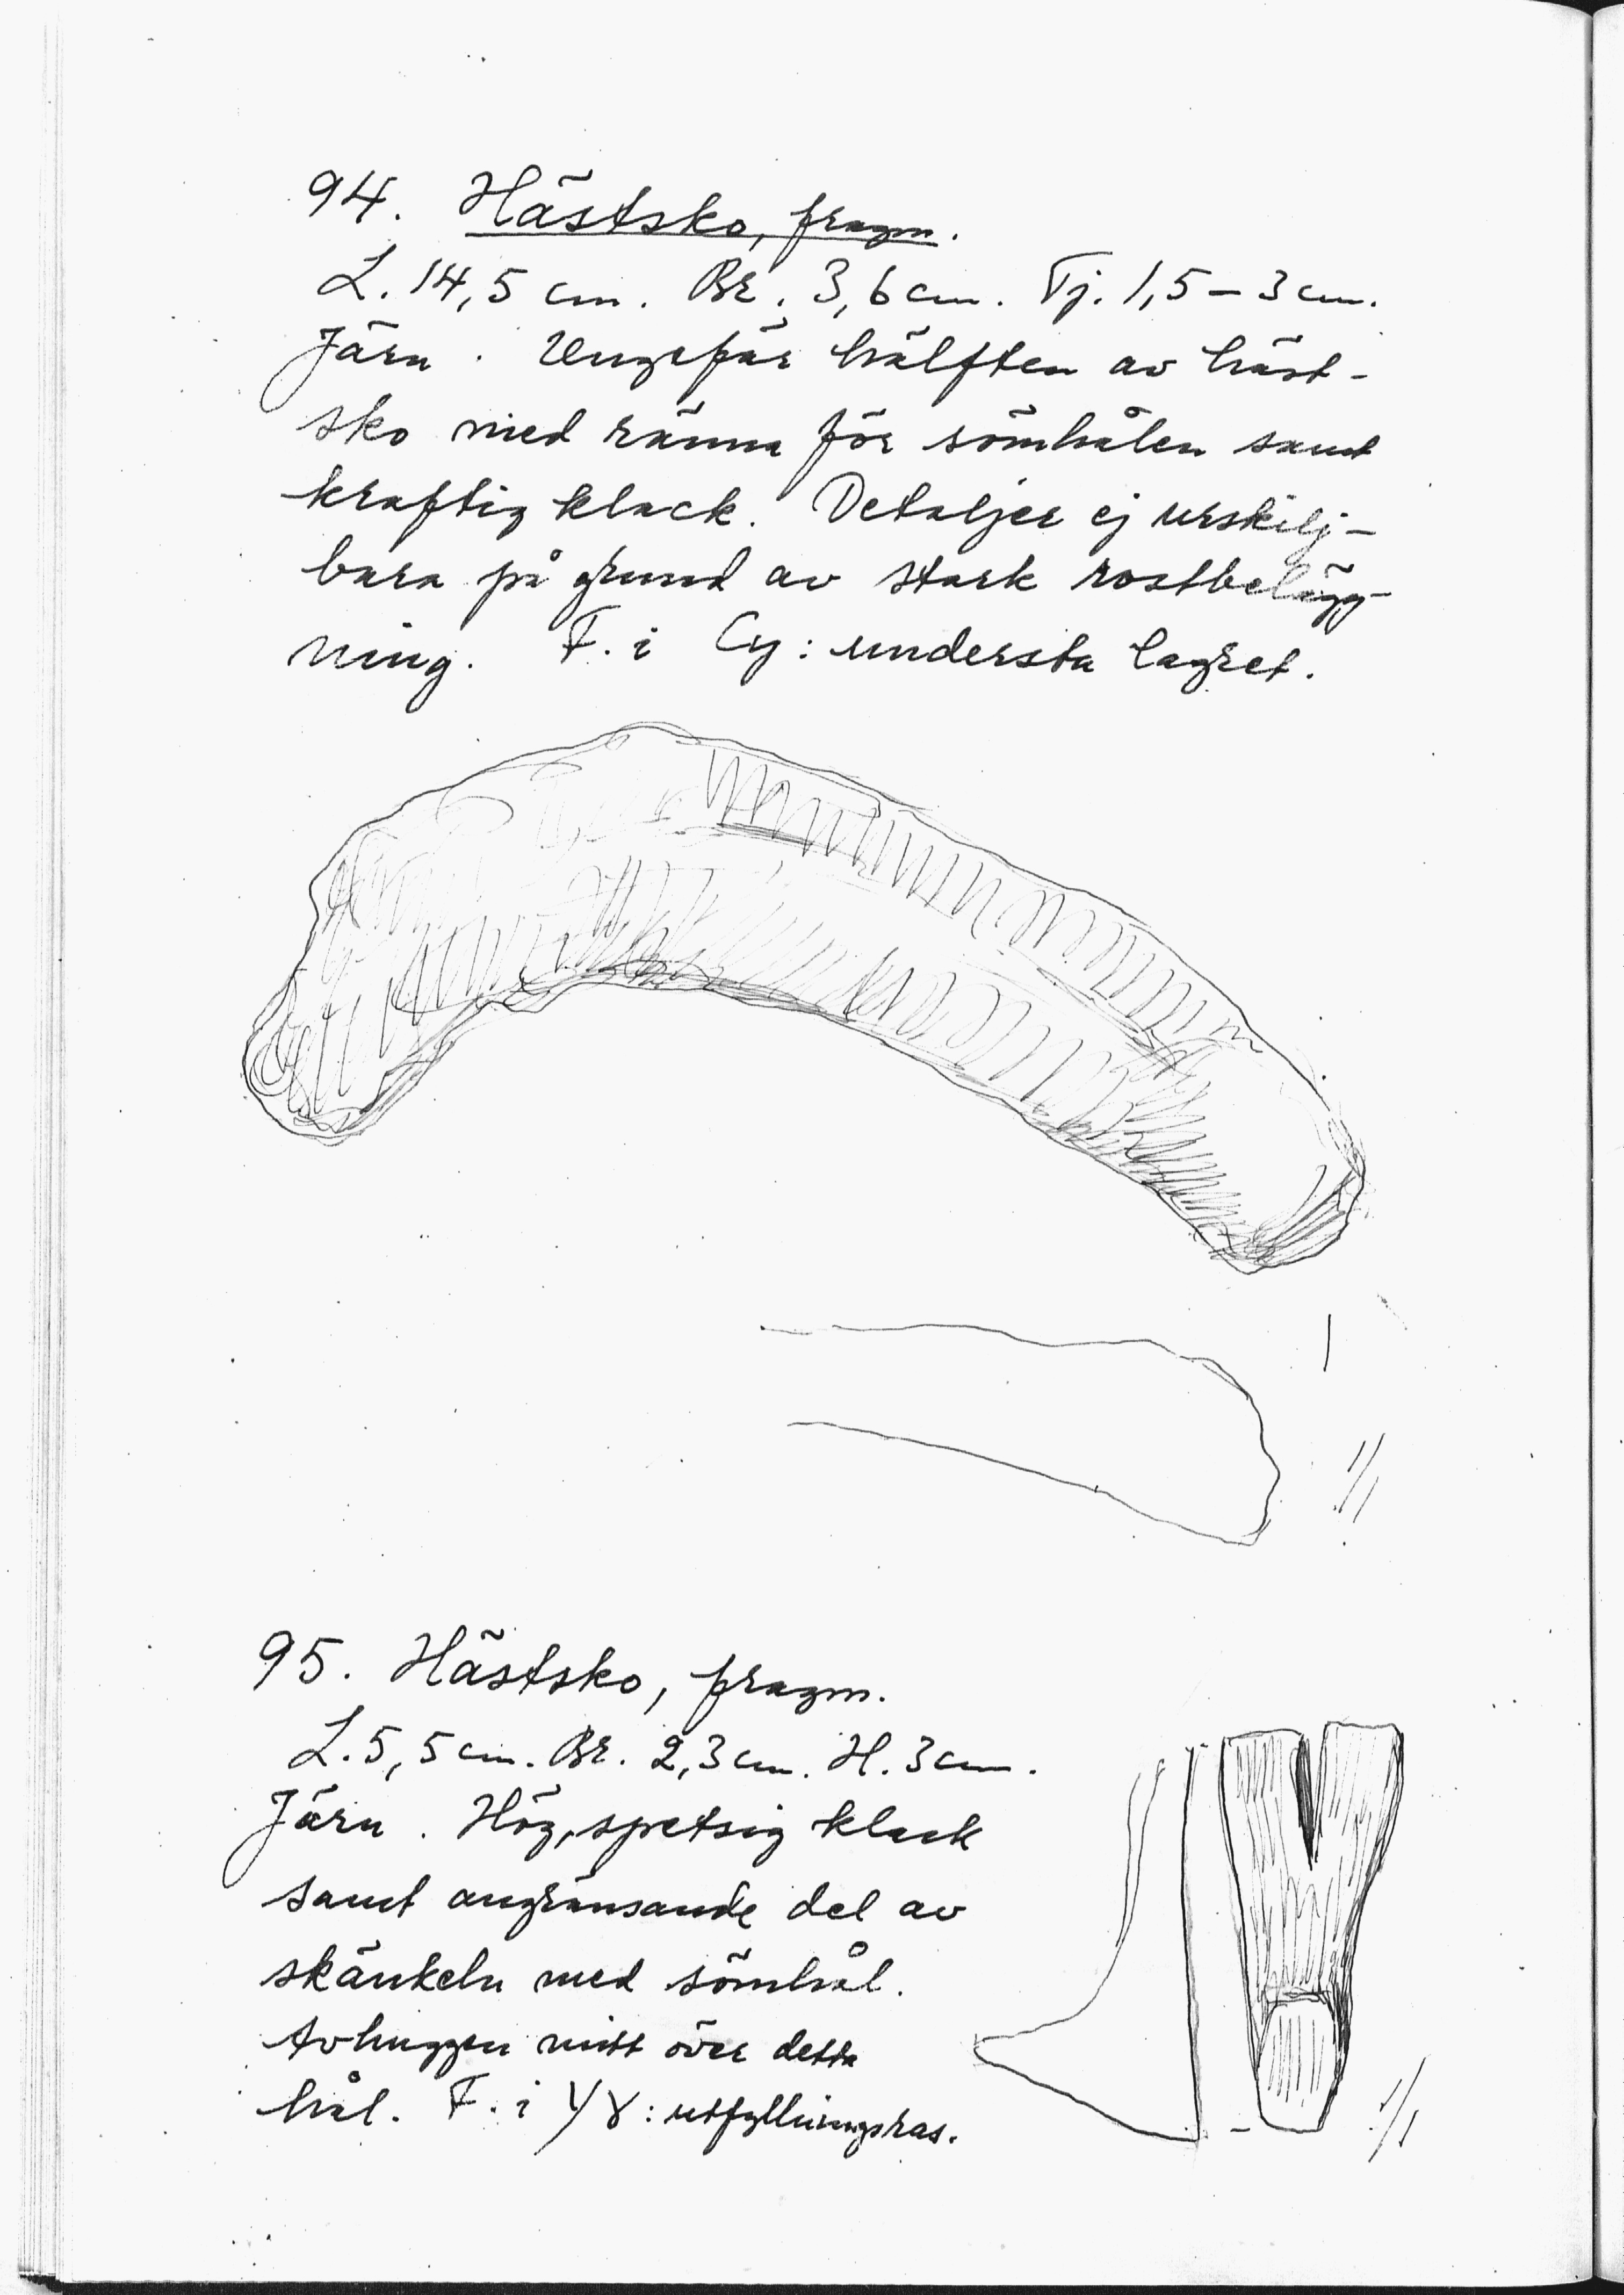 94. Hästsko, fragm.
L. 14,5 cm. Br. 3,6 cm. Tj. 1,5 – 3 cm.
Järn. Ungefär hälften av häst-
sko med ränna för sömhålen samt
kraftig klack. Detaljer ej urskilj-
bara på grund av stark rostbelägg-
ning. F. i Cy: understa lagret.
1/1
95. Hästsko, fragm.
L. 5,5 cm. Br. 2,3 cm. H. 3 cm.
Järn. Hög, spetsig klack
samt angränsande del av
skänkeln med sömhål.
Avhuggen mitt över detta
hål. F. i : utfyllningsras.
1/1